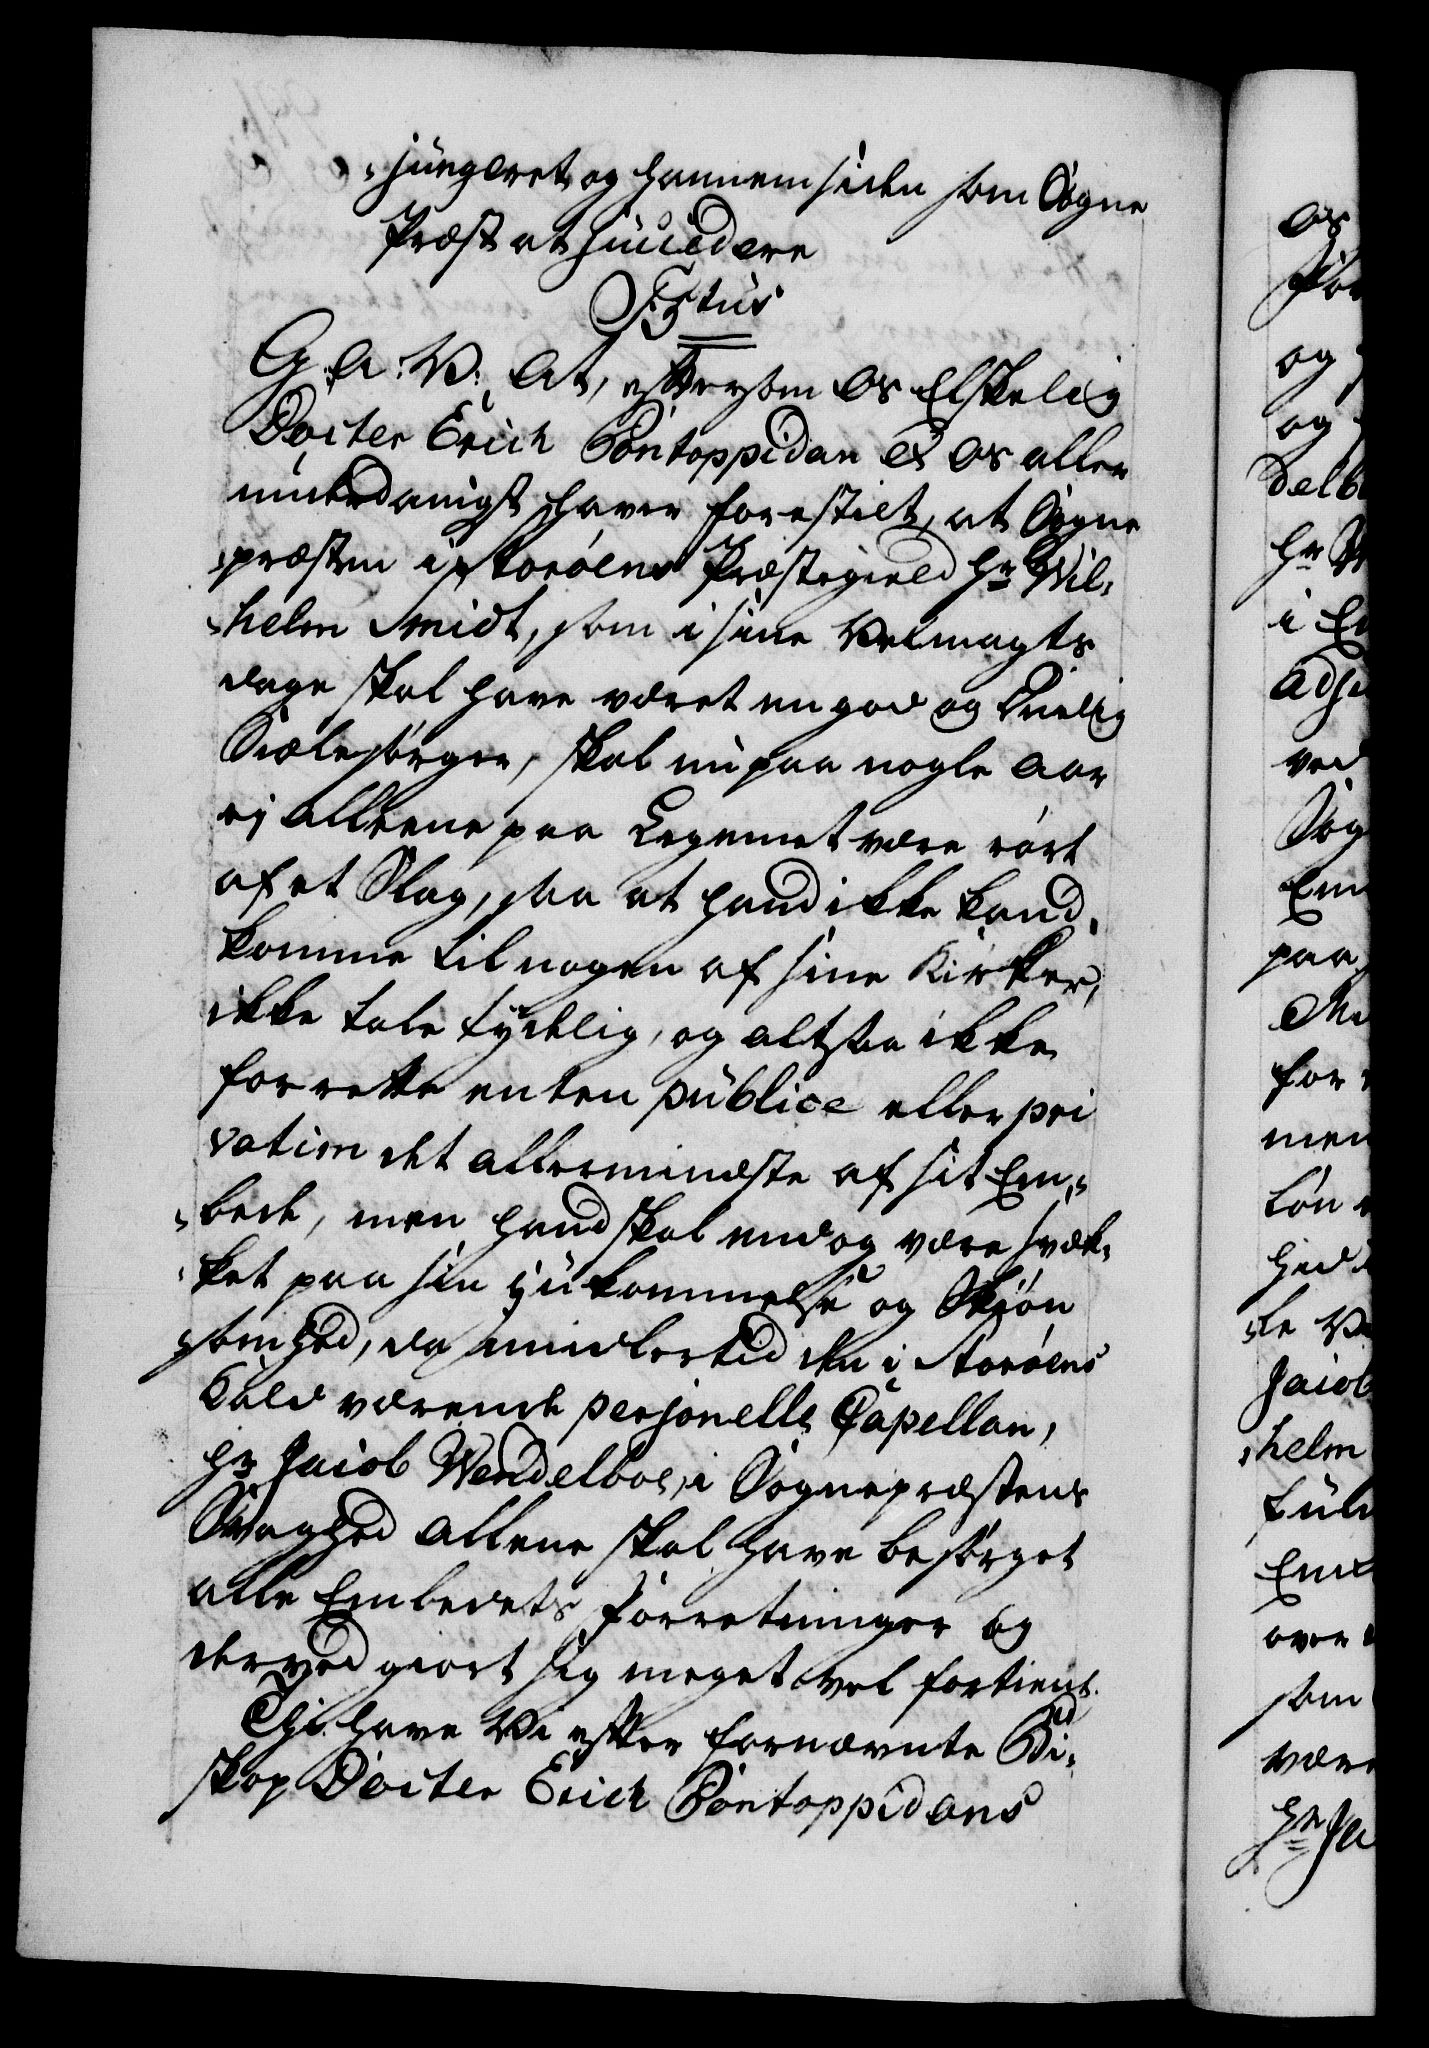 -jungeret, og hannem siden som Sogne
Præst at succedere
F5tus
G: A: V: At, eftersom Os Elskelig
Docter Erich Pontoppidan &c Os aller
underdanigst haver forestilt, at Sogne
præsten i Storöens Præstegield Hr Wil-
-helm Smidt, som i sine Velmagts
dage skal have været en god og Duelig
Siælesörger, skal nu paa nogle Aar
ej alleene paa Legemet være rört
af et Slag, saa at hand ikke kand
komme til nogen af sine Kirker,
ikke tale tydelig, og altsaa ikke
forrette enten publice eller pri
vatim det allermindste af sit Em-
-bede, men hand skal endog være svæk-
-ket paa sin Hukommelse og Skiön
-somhed, da imidlertid den i Storöens
Kald værende personelle Capellan,
Hr Jacob Wendelboe, i Sognepræstens
Svaghed allene skal have besörget
alle Embedets Forretninger og
derved giort sig meget vel fortient.
Thi have Vi efter fornævnte Bi-
skop Docter Erich Pontoppidans
Os
og
og
delb
Hr
i
Adju
ved
Sog
Em
paa
for
men
lön
hid
helm
Jacob
fuld
over
som
være
Hr Ja